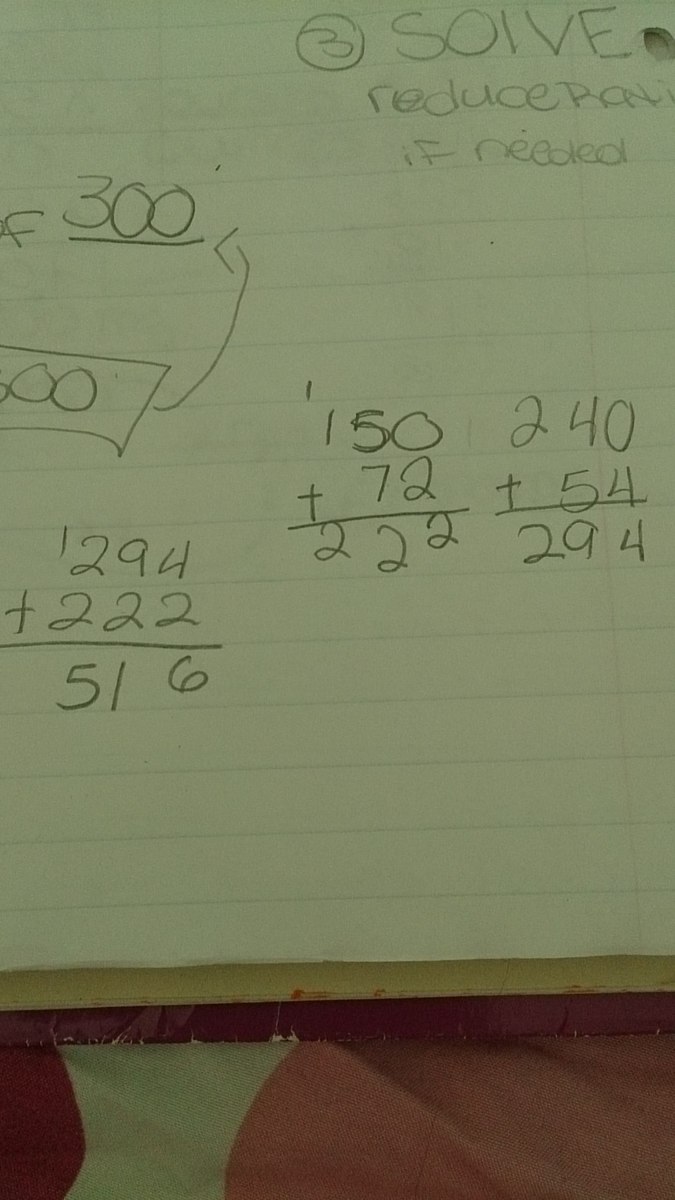 ③ SOLVE
reduce
if needed
OF 300
1
150
+ 72
222
240
+ 54
294
1
294
+222
516